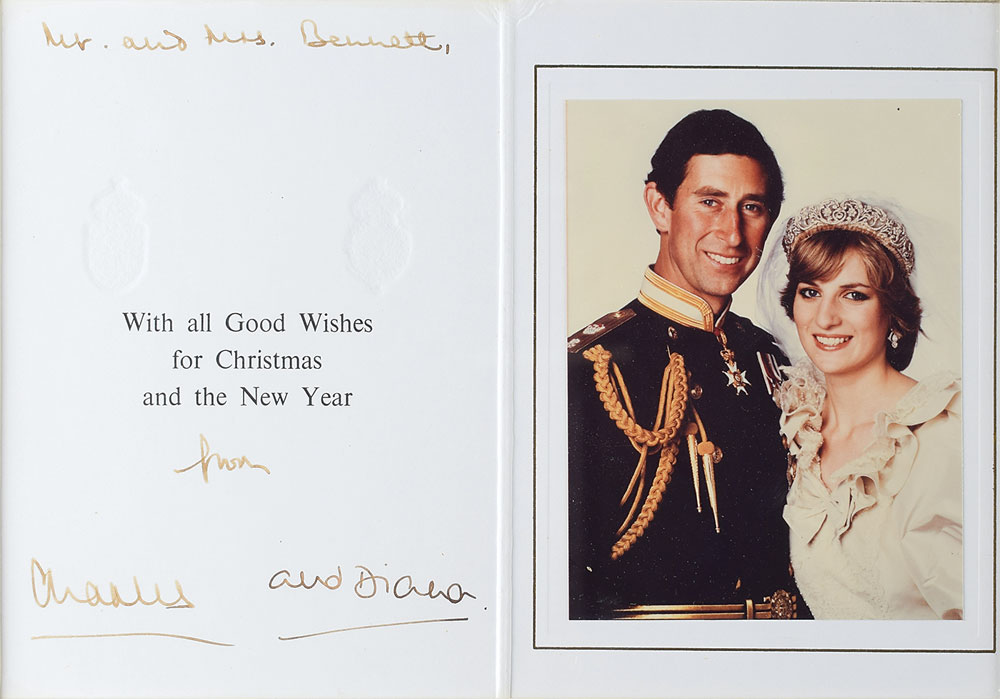 Mr. and Mrs. Bennett,
With all Good Wishes
for Christmas
and the New Year
from
Charles and Diana.